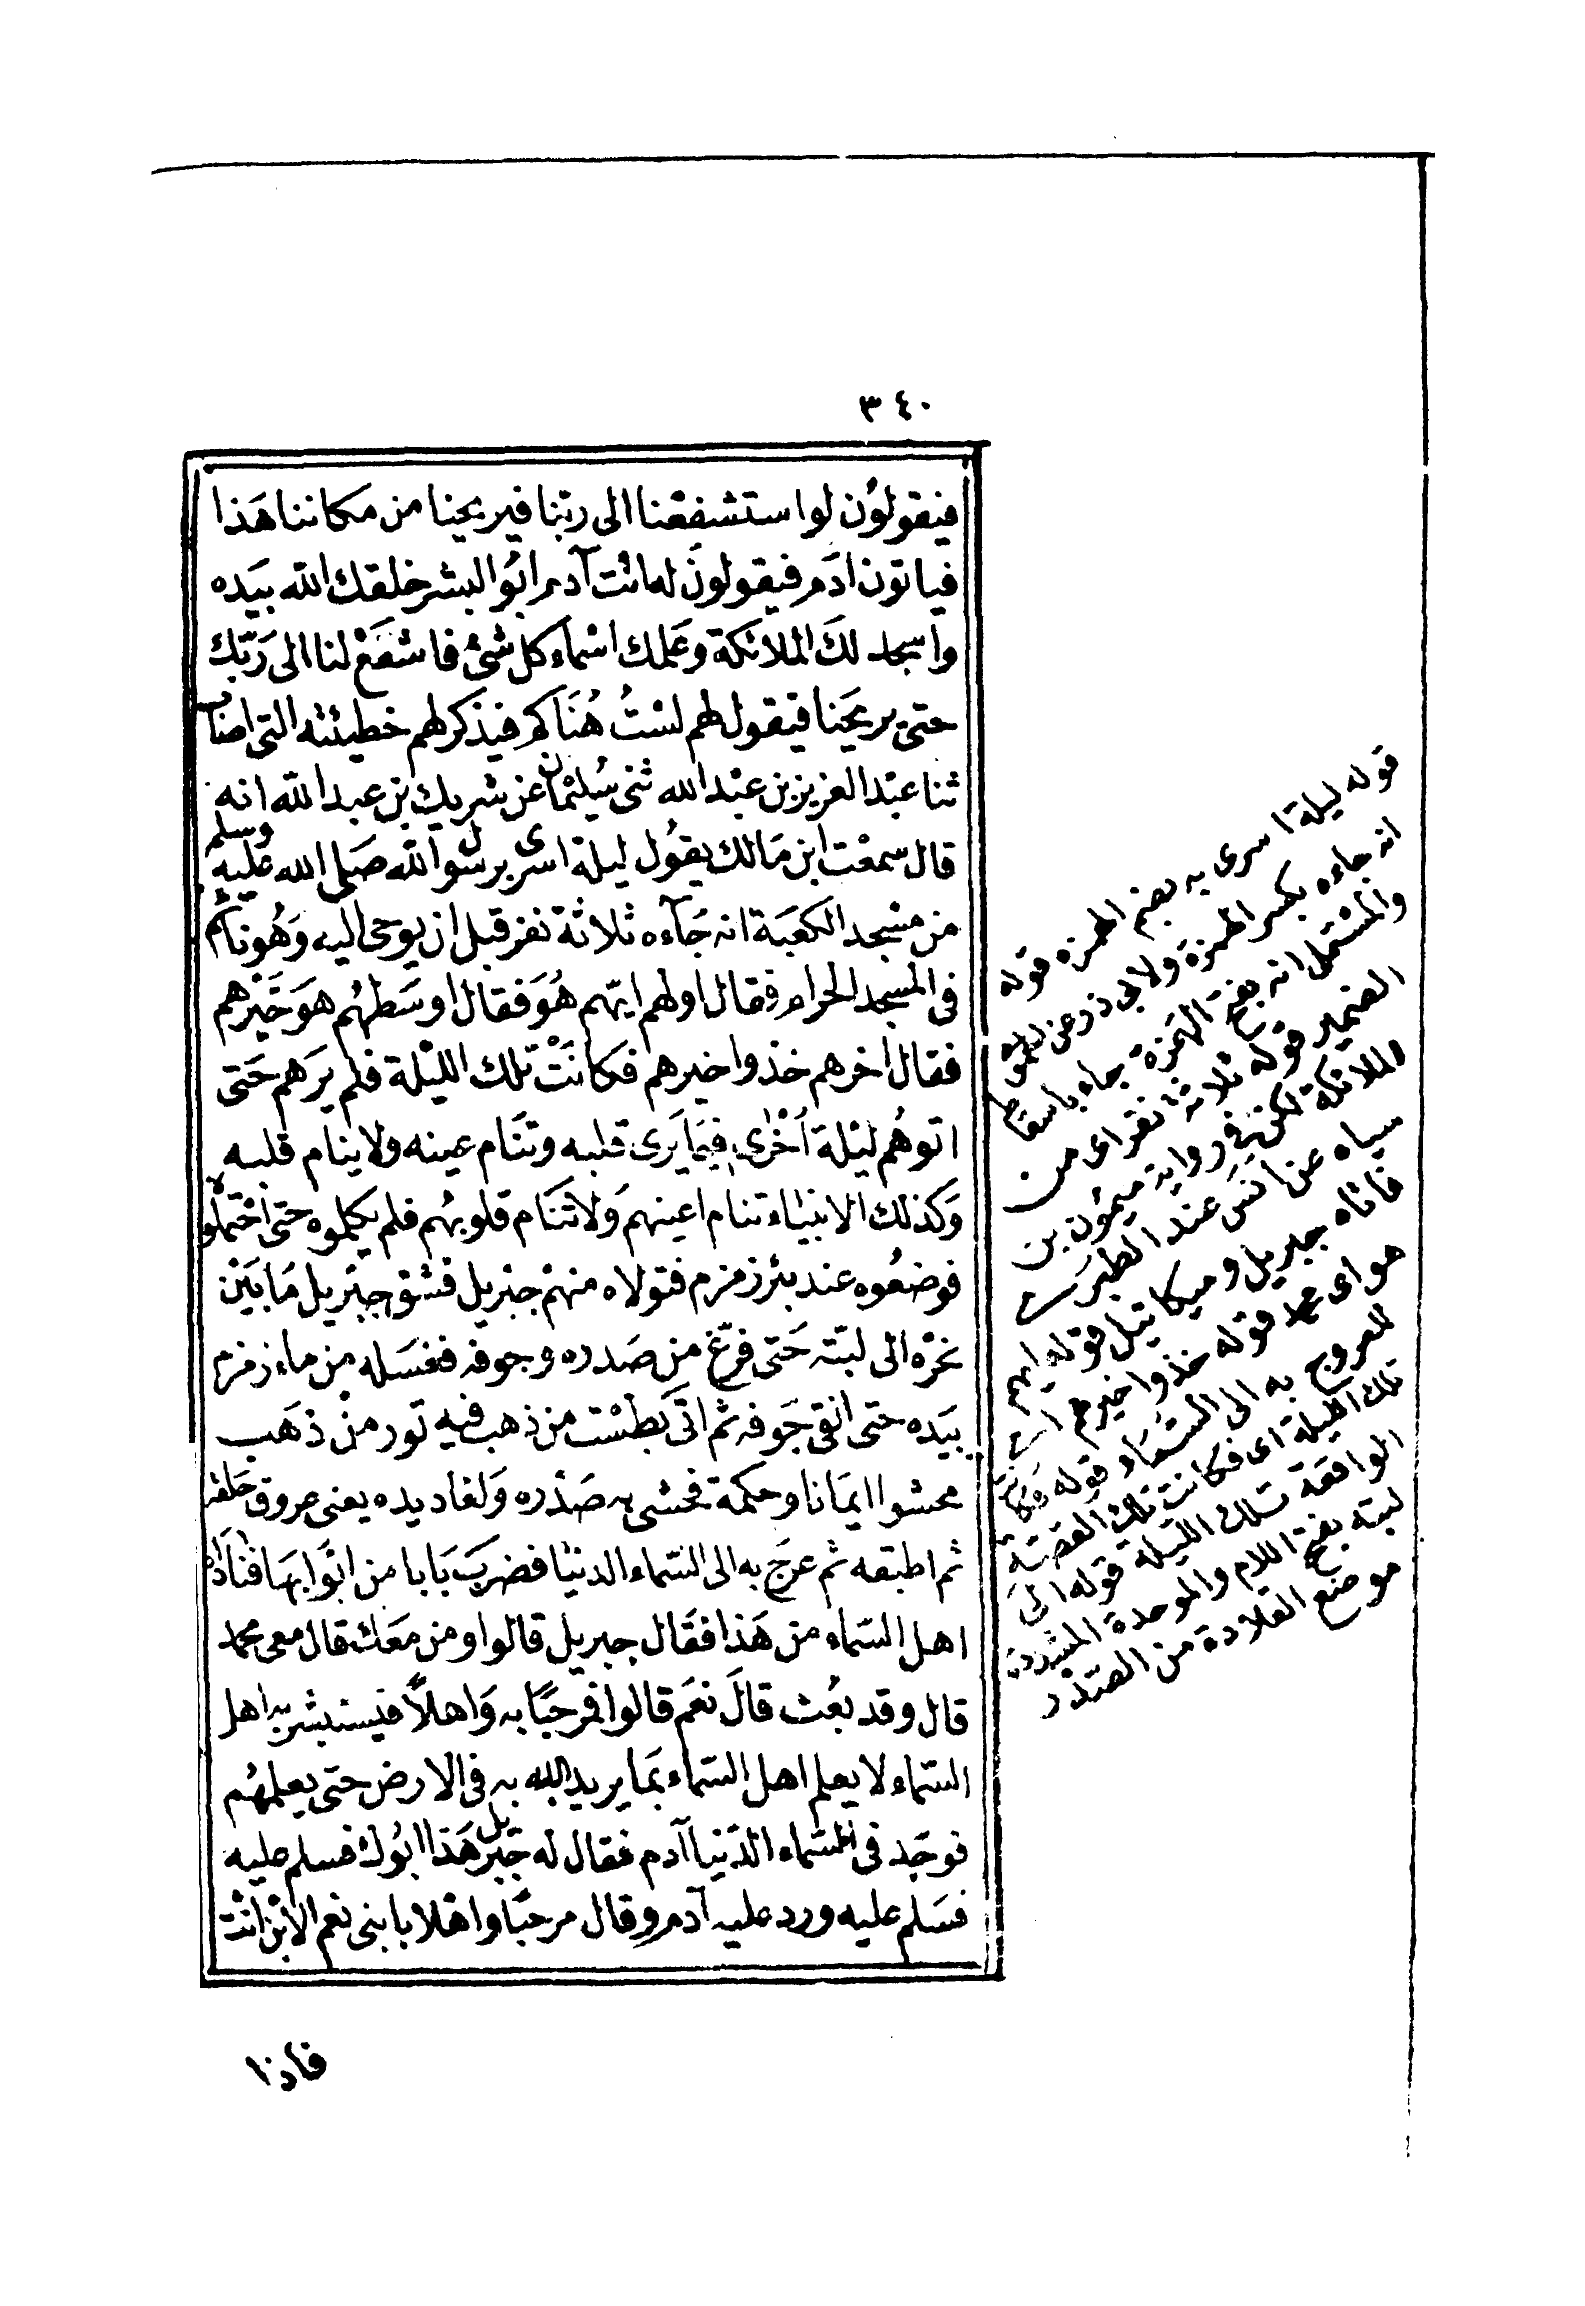 ٣٤٠
فيقولون لو استشفعنا الى ربنا فيريحنا من مكاننا هذا
فياتون ادم فيقولون له انت آدم ابو البشر خلقك الله بيده
واسجد لك الملائكة وعلمك اسماء كل شئ فاشفع لنا الى ربك
حتى يريحنا فيقول لهم لست هناكم فيذكر لهم خطيئته التى اصاب
ثنا عبد العزيز بن عبد الله ثنى سليمان عن شريك بن عبد الله انه
قال سمعت ابن مالك يقول ليلة اسرى برسول الله صلى الله عليه وسلم
من مسجد الكعبة انه جآءه ثلاثة نفر قبل ان يوحى اليه وهو نائم
فى المسجد الحرام فقال اولهم ايهم هو فقال اوسطهم هو خيرهم
فقال اخرهم خذوا خيرهم فكانت تلك الليلة فلم يرهم حتى
اتوهم ليلة اخرى فيما يرى قلبه وتنام عينه ولا ينام قلبه
وكذلك الانبياء تنام اعينهم ولا تنام قلوبهم فلم يكلموه حتى احتملوه
فوضعوه عند بئر زمزم فتولاه منهم جبريل فشق جبريل ما بين
نحره الى لبته حتى فرغ من صدره وجوفه فغسله من ماء زمزم
بيده حتى انقى جوفه ثم اتى بطست من ذهب فيه تور من ذهب
محشوا ايمانا وحكمة فحشى به صدره ولغاديده يعنى عروق حلقه
ثم اطبقه ثم عرج به الى السماء الدنيا فضرب بابا من ابوابها فناداه
اهل السماء من هذا فقال جبريل قالوا ومن معك قال معى محمد
قال وقد بعث قال نعم قالوا فمرحبا به واهلا فيستبشر به اهل
السماء لا يعلم اهل السماء بما يريد الله به فى الارض حتى يعلمهم
فوجد فى السماء الدنيا آدم فقال له جبريل هذا ابوك فسلم عليه
فسلم عليه ورد عليه آدم وقال مرحبا واهلا بابنى نعم الابن انت
فاذا
قوله ليلة اسرى به بضم الهمزه قوله
انه جاءه بكسر الهمزة ولابى ذر عن الحموى
والمستملى انه بفتح الهمزة جاء باسقاط
الضمير قوله ثلاثة نفر اى من
الملائكة لكن فى رواية ميمون بن
سياه عن انس عند الطبرى
فاتاه جبريل وميكائيل قوله ايهم
هو اى محمد قوله خذوا خيرهم اى
للعروج به الى السماء قوله فكانت
تلك الليلة اى فكانت تلك القصة
الواقعة تلك الليلة قوله الى
لبته بفتح اللام والموحدة المشددة
موضع القلادة من الصدر